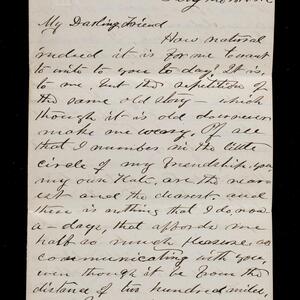 My Darling Friend
How natural
indeed it is for me to want
to write to you to day! It is,
to me, but the repetition of
the same old story - which
though it is old does never
make me weary. Of all
that I number in the little
circle of my friendship you,
my own Kate, are the near-
est and the dearest. and
there is nothing that I do, now
a-days, that affords me
half so much pleasure, as
communicating with you,
even though it be from the
distance of two hundred miles,